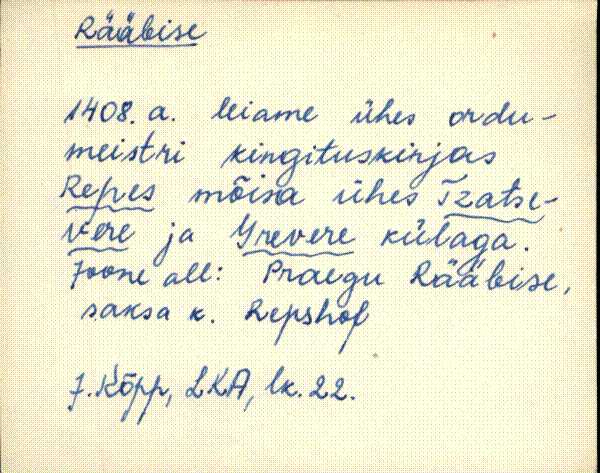 Rääbise
1408. a. leiame ühes ordu-
meistri kingituskirjas
Repes mõisa ühes Tzatse-
vere ja Yrevere külaga.
Joone all: Praegu Rääbise,
saksa k. Repshof
J. Kõpp, LKA, lk. 22.